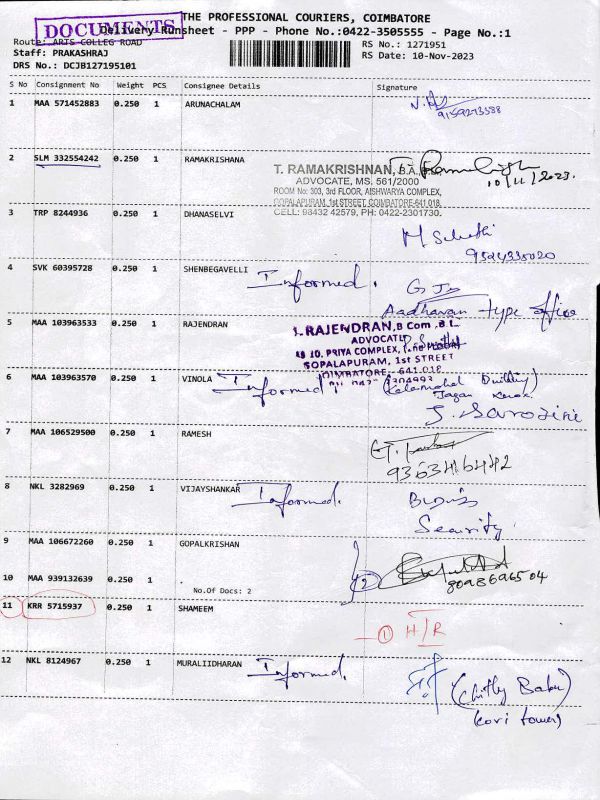 THE PROFESSIONAL COURIERS, COIMBATORE
DOCUMENTS
Delivery Runsheet - PPP - Phone No.:0422-3505555 - Page No.:1
Route: ARTS COLLEG ROAD
RS No.: 1271951
Staff: PRAKASHRAJ
RS Date: 10-Nov-2023
DRS No.: DCJB127195101
S No Consignment No Weight PCS Consignee Details Signature
1 MAA 571452883 0.250 1 ARUNACHALAM
9159213588
2 SLM 332554242 0.250 1 RAMAKRISHANA
T. RAMAKRISHNAN, B.A.,
ADVOCATE, MS. 561/2000
10/11/2023.
ROOM No: 303, 3rd FLOOR, AISHWARYA COMPLEX,
GOPALAPURAM, 1st STREET, COIMBATORE-641 018.
CELL: 98432 42579, PH: 0422-2301730.
3 TRP 8244936 0.250 1 DHANASELVI
4 SVK 60395728 0.250 1 SHENBEGAVELLI Informed.
Aadhavan type office
5 MAA 103963533 0.250 1 RAJENDRAN
RAJENDRAN, B Com., B.L.
ADVOCATE
PRIYA COMPLEX,
GOPALAPURAM, 1st STREET
COIMBATORE - 641 018
6 MAA 103963570 0.250 1 VINOLA Informed
J. Sarojini
7 MAA 106529500 0.250 1 RAMESH
9363416442
8 NKL 3282969 0.250 1 VIJAYSHANKAR Informed.
Security
9 MAA 106672260 0.250 1 GOPALKRISHAN
10 MAA 939132639 0.250 1 2
8098696504
No.Of Docs: 2
11 KRR 5715937 0.250 1 SHAMEEM
1 H/R
12 NKL 8124967 0.250 1 MURALIIDHARAN Informed.
(Chitty Babu)
(kovi tower)